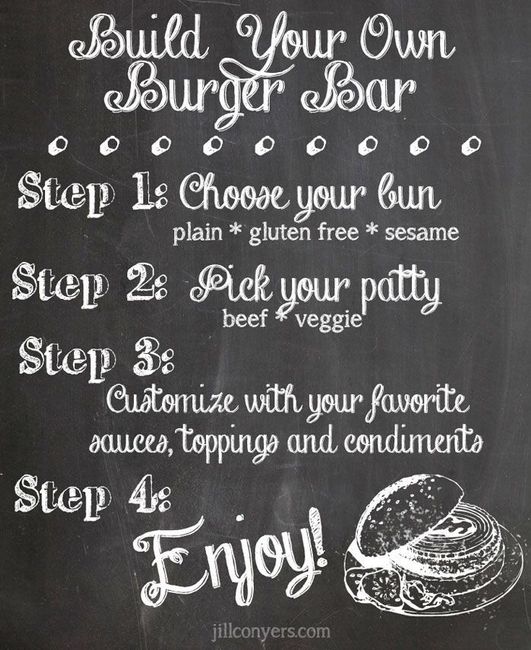 Build Your Own
Burger Bar
Step 1: Choose your bun
plain * gluten free * sesame
Step 2: Pick your patty
beef * veggie
Step 3:
Customize with your favorite
sauces, toppings and condiments
Step 4:
Enjoy!
jillconyers.com